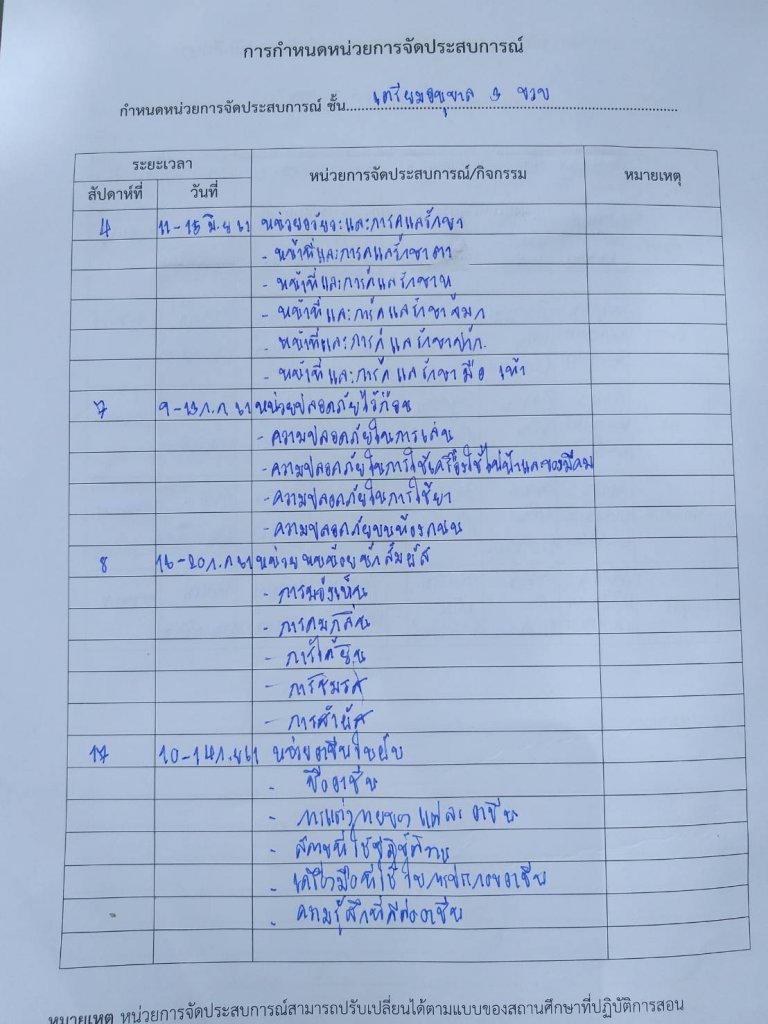 การกำหนดหน่วยการจัดประสบการณ์
กำหนดหน่วยการจัดประสบการณ์ ชั้น เตรียมอนุบาล 3 ขวบ
ระยะเวลา
หน่วยการจัดประสบการณ์/กิจกรรม
หมายเหตุ
สัปดาห์ที่ วันที่
4 11-15 มิ.ย 61 หน่วยอวัยวะและการดูแลรักษา
- หน้าที่และการดูแลรักษาตา
- หน้าที่และการดูแลรักษาหู
- หน้าที่และการดูแลรักษาจมูก
- หน้าที่และการดูแลรักษาปาก
- หน้าที่และการดูแลรักษา มือ เท้า
7 9-13 ก.ค 61 หน่วยปลอดภัยไว้ก่อน
- ความปลอดภัยในการเล่น
- ความปลอดภัยในการใช้เครื่องใช้ไฟฟ้าและของมีคม
- ความปลอดภัยในการใช้ยา
- ความปลอดภัยบนท้องถนน
8 16-20 ก.ค 61 หน่วยหนูน้อยนักสัมผัส
- การมองเห็น
- การดมกลิ่น
- การได้ยิน
- การชิมรส
- การสัมผัส
17 10-14 ก.ย 61 หน่วยอาชีพในฝัน
- ชื่ออาชีพ
- การแต่งกายของแต่ละอาชีพ
- สถานที่ใช้ปฏิบัติงาน
- เครื่องมือที่ใช้ในการประกอบอาชีพ
- ความรู้สึกที่ดีต่ออาชีพ
หมายเหตุ หน่วยการจัดประสบการณ์สามารถปรับเปลี่ยนได้ตามแบบของสถานศึกษาที่ปฏิบัติการสอน